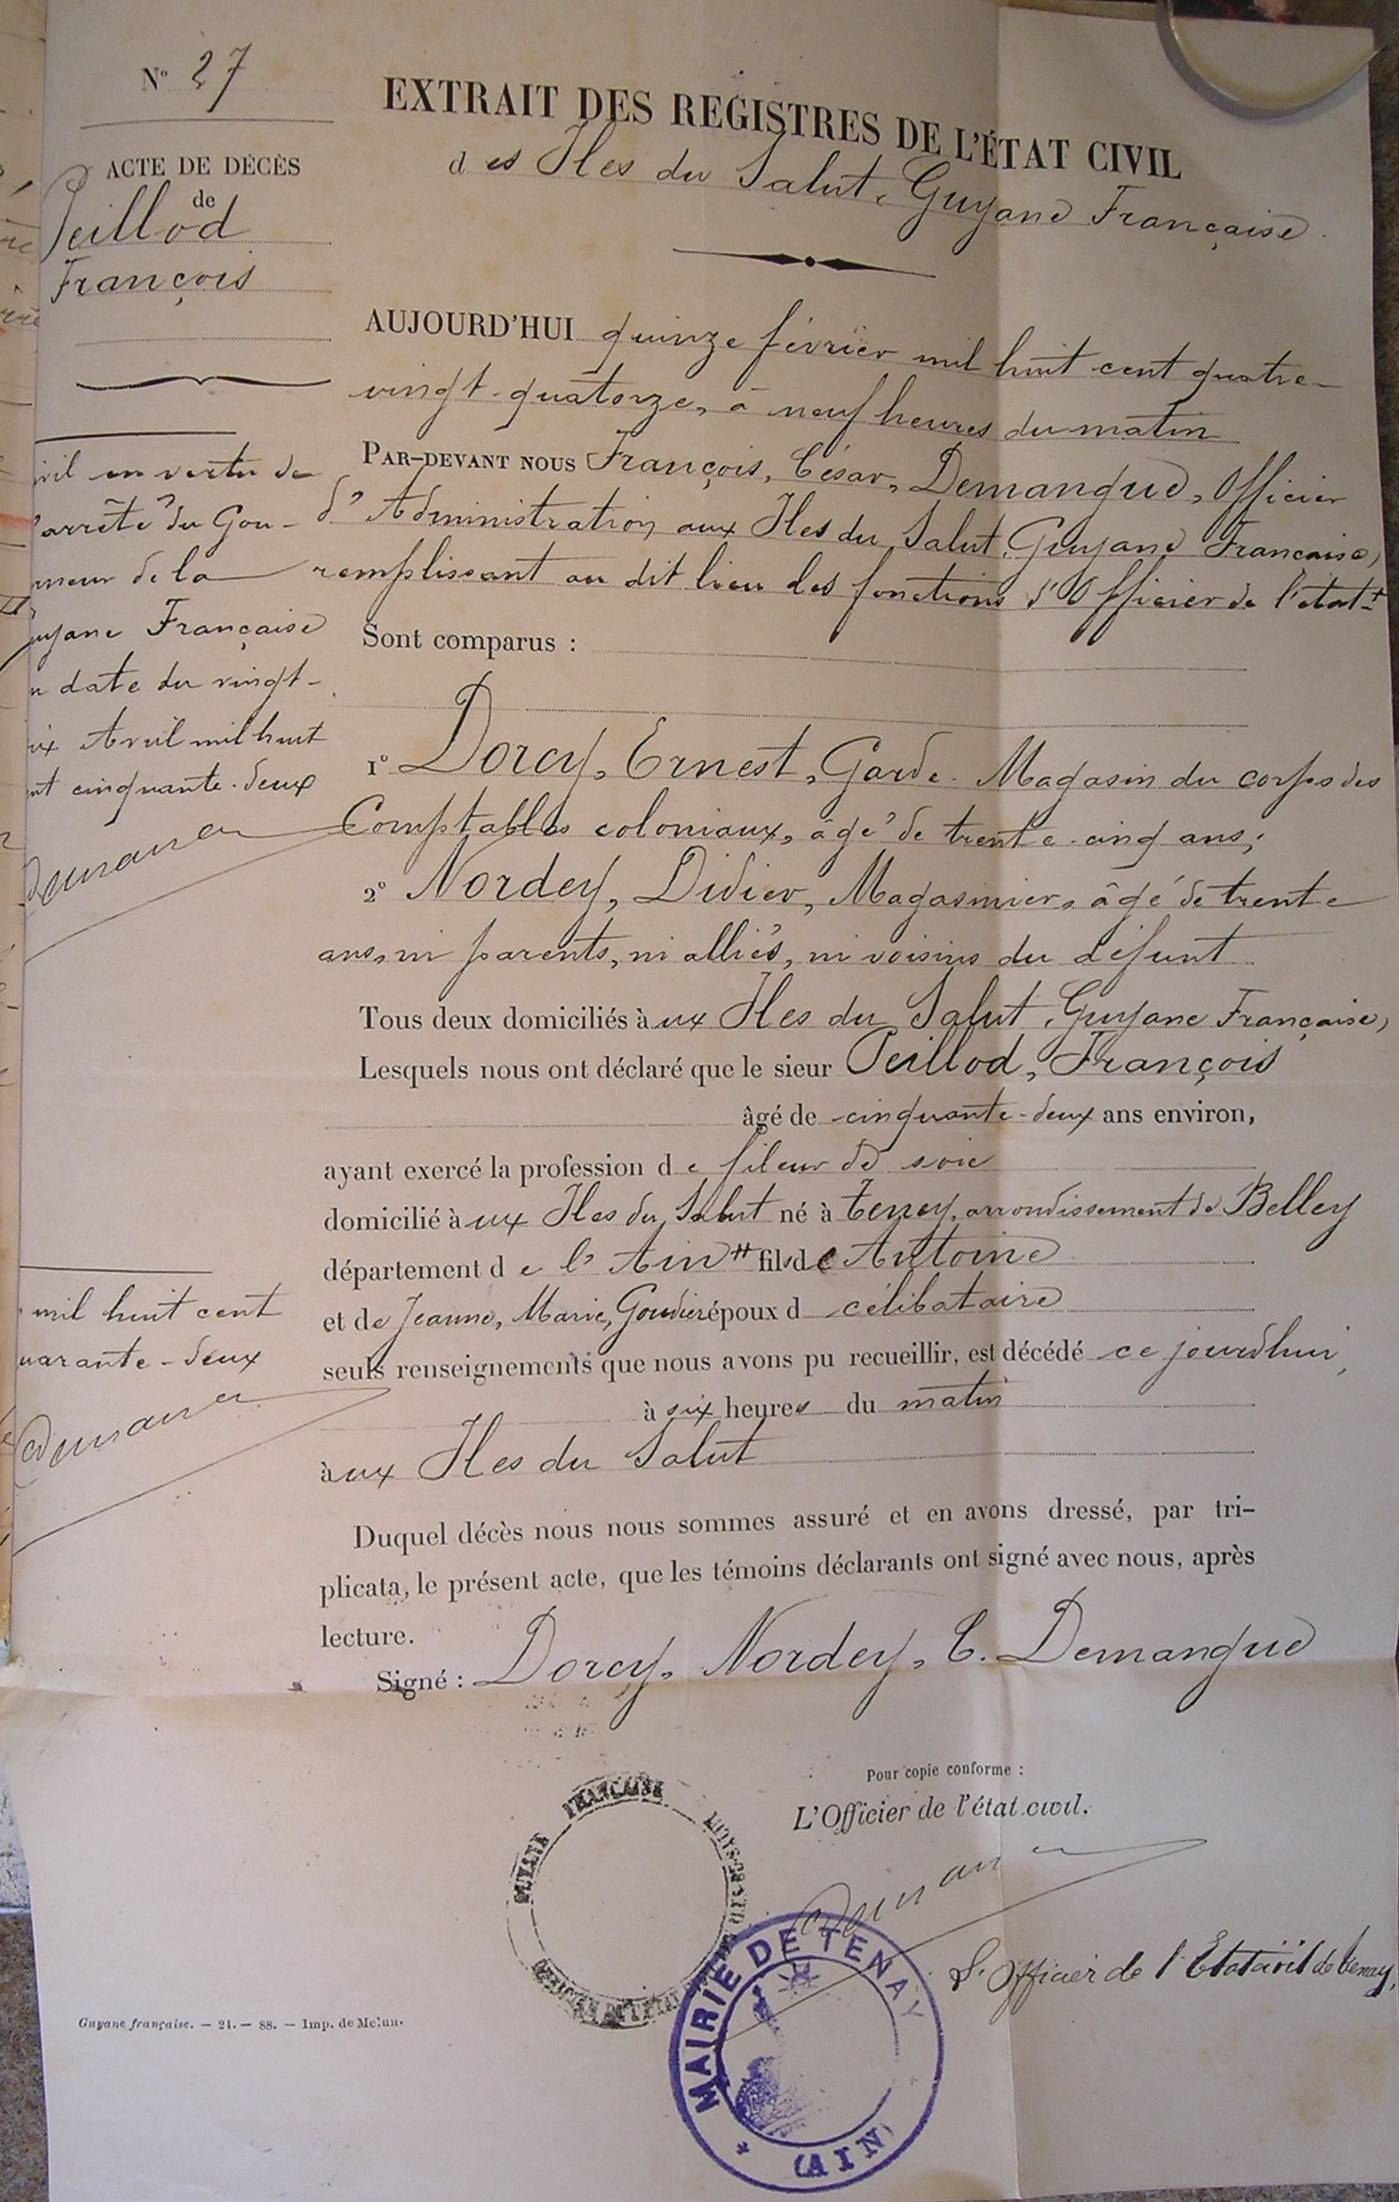 N° 27
ACTE DE DÉCÈS
de
Peillod
François
EXTRAIT DES REGISTRES DE L'ÉTAT CIVIL
des Iles du Salut, Guyane Française.
AUJOURD'HUI quinze février mil huit cent quatre-
vingt-quatorze, à neuf heures du matin
PAR-DEVANT NOUS François, César, Demangue, Officier
d'Administration aux Iles du Salut, Guyane Française,
remplissant au dit lieu les fonctions d'Officier de l'état
vil en vertu de
l'arrêté du Gou-
rneur de la
uyane Française
n date du vingt-
ix Avril mil huit
nt cinquante-deux
Sont comparus :
1° Dorcy, Ernest, Garde-Magasin du corps des
Comptables coloniaux, âgé de trente-cinq ans;
2° Nordey, Didier, Magasinier, âgé de trente
ans, ni parents, ni alliés, ni voisins du défunt
Tous deux domiciliés à ux Iles du Salut, Guyane Française,
Lesquels nous ont déclaré que le sieur Peillod, François
âgé de cinquante-deux ans environ,
ayant exercé la profession de fileur de soie
domicilié à ux Iles du Salut né à Tenay, arrondissement de Belley
département de l'Ain # fils de Antoine
mil huit cent
uarante-deux
et de Jeanne, Marie, Goudier époux d célibataire
seuls renseignements que nous avons pu recueillir, est décédé ce jourd'hui,
à six heures du matin
à ux Iles du Salut
Duquel décès nous nous sommes assuré et en avons dressé, par tri-
plicata, le présent acte, que les témoins déclarants ont signé avec nous, après
lecture.
Signé : Dorcy, Nordey, C. Demangue
Pour copie conforme :
L'Officier de l'état civil.
L'Officier de l'Etat civil de Tenay,
GUYANE FRANÇAISE
MAIRIE DE TENAY
(AIN)
Guyane française. — 21. — 88. — Imp. de Melun.